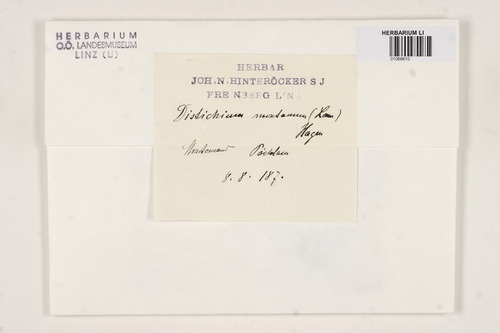 HERBARIUM
O.Ö. LANDESMUSEUM
LINZ (U)
HERBARIUM LI
HERBAR
JOH. N. HINTERÖCKER S J
FREINBERG LINZ
Distichium montanum (Lam)
Hagen
Pöchlarn
8. 8. 187.